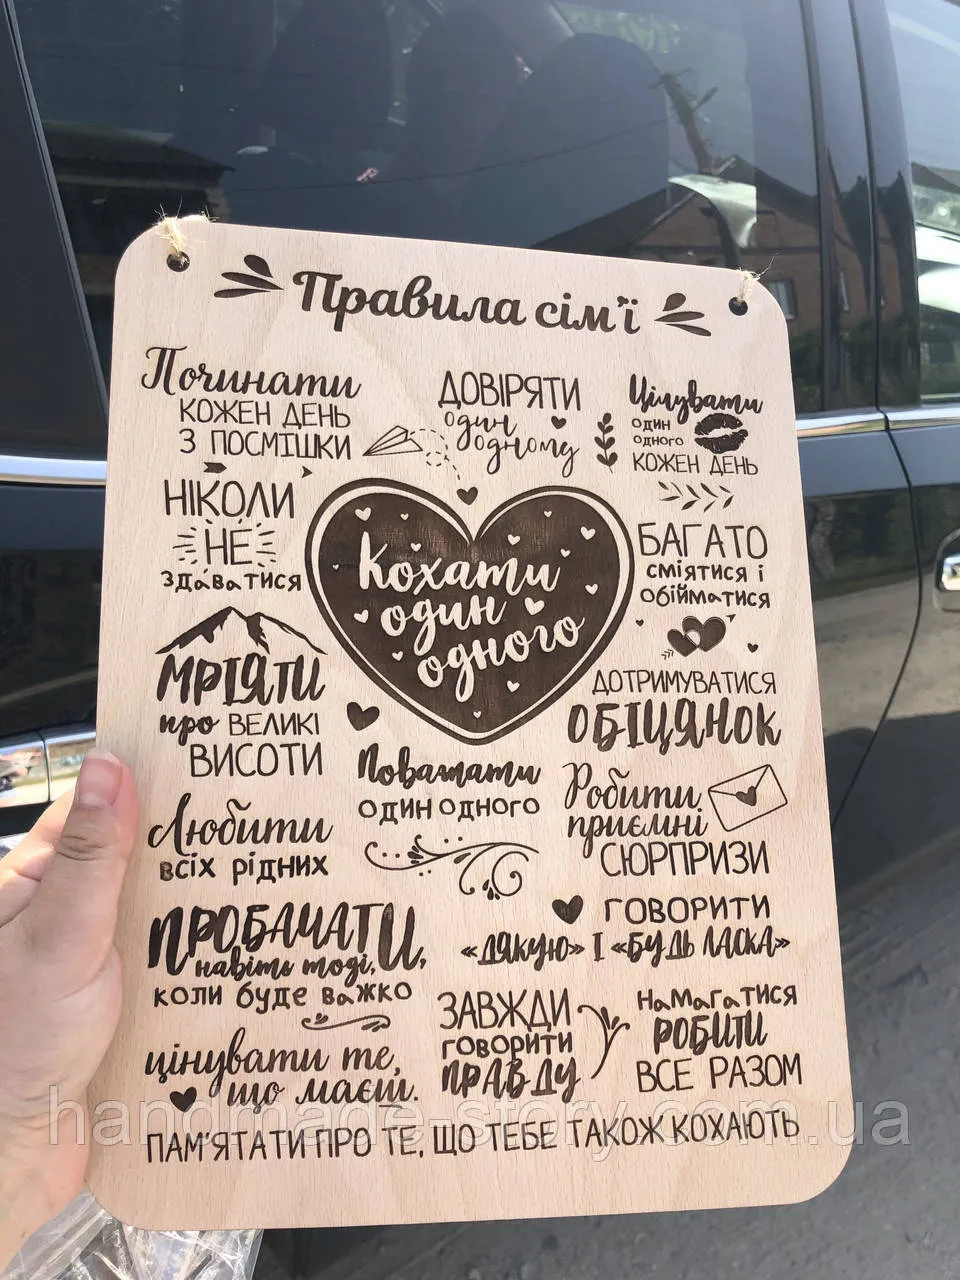 Правила сім'ї
Починати
КОЖЕН ДЕНЬ
З ПОСМІШКИ
ДОВІРЯТИ
один
одному
Цілувати
один
одного
КОЖЕН ДЕНЬ
НІКОЛИ
НЕ
здаватися
Кохати
один
одного
БАГАТО
сміятися і
обійматися
МРІЯТИ
про ВЕЛИКІ
ВИСОТИ
ДОТРИМУВАТИСЯ
ОБІЦЯНОК
Поважати
один одного
Робити
приємні
СЮРПРИЗИ
Любити
всіх рідних
ПРОБАЧАТИ,
навіть тоді,
коли буде важко
ГОВОРИТИ
«ДЯКУЮ» І «БУДЬ ЛАСКА»
ЗАВЖДИ
ГОВОРИТИ
ПРАВДУ
Намагатися
РОБИТИ
ВСЕ РАЗОМ
цінувати те,
що маєш.
ПАМ'ЯТАТИ ПРО ТЕ, ЩО ТЕБЕ ТАКОЖ КОХАЮТЬ
handmade-story.com.ua